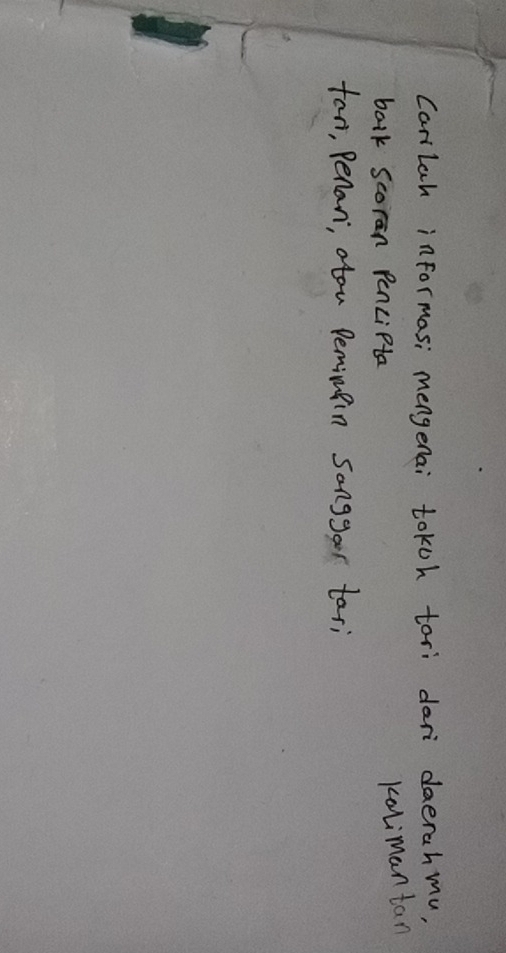 Carilah informasi mengenai tokoh tari dari daerahmu,
Kalimantan
baik seoran Pencipta
tari, Penari, atau Pemimpin sanggar tari